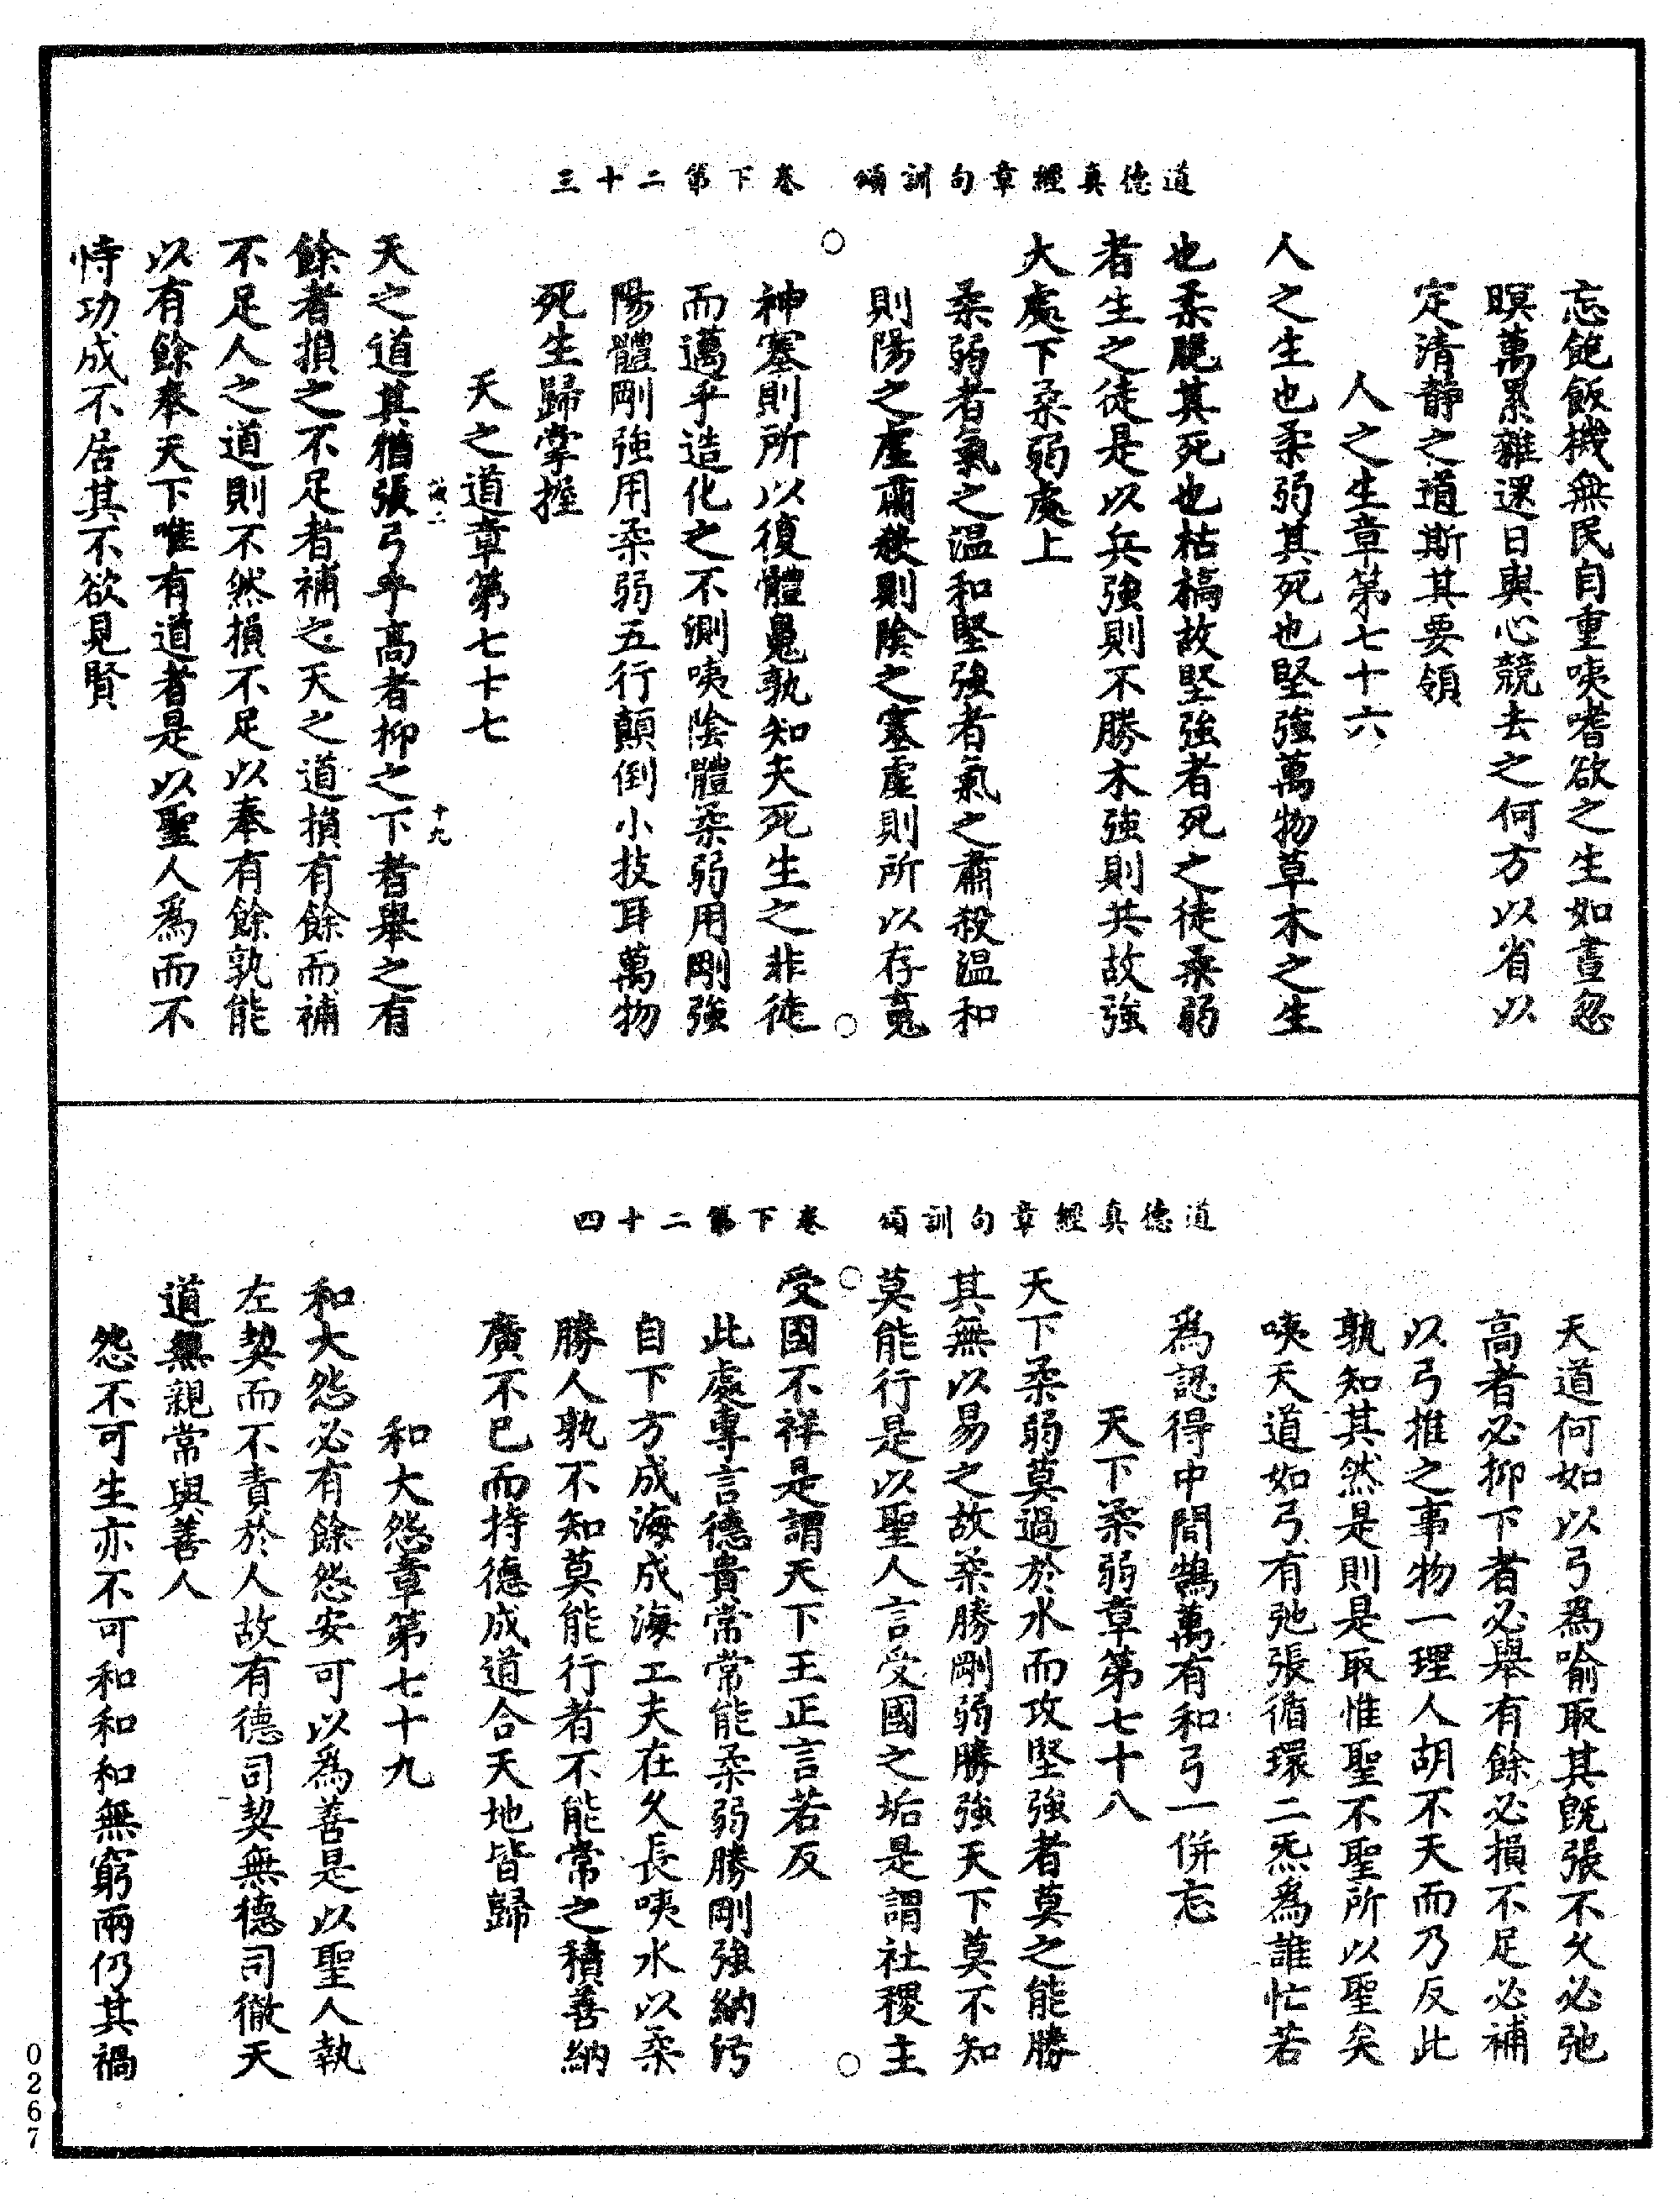 道德真經章句訓頌　卷下第二十三
忘飽飯機無民自重咦嗜欲之生如晝忽
暝萬累雜遝日與心競去之何方以省以
定清靜之道斯其要領
人之生章第七十六
人之生也柔弱其死也堅強萬物草木之生
也柔脆其死也枯槁故堅強者死之徒柔弱
者生之徒是以兵強則不勝木強則共故強
大處下柔弱處上
柔弱者氣之温和堅強者氣之肅殺温和
則陽之虛肅殺則陰之塞虛則所以存䰟
神塞則所以復體鬼孰知夫死生之非徒
而邁乎造化之不測咦陰體柔弱用剛強
陽體剛強用柔弱五行顛倒小技耳萬物
死生歸掌握
天之道章第七十七
十九
天之道其猶張弓乎高者抑之下者舉之有
餘者損之不足者補之天之道損有餘而補
不足人之道則不然損不足以奉有餘孰能
以有餘奉天下唯有道者是以聖人為而不
恃功成不居其不欲見賢
道德真經章句訓頌　卷下第二十四
天道何如以弓為喻取其旣張不久必弛
高者必抑下者必舉有餘必損不足必補
以弓推之事物一理人胡不天而乃反此
孰知其然是則是取惟聖不聖所以聖矣
咦天道如弓有弛張循環二炁為誰忙若
為認得中間鵠萬有和弓一併忘
天下柔弱章第七十八
天下柔弱莫過於水而攻堅強者莫之能勝
其無以易之故柔勝剛弱勝強天下莫不知
莫能行是以聖人言受國之垢是謂社稷主
受國不祥是謂天下王正言若反
此處專言德貴常常能柔弱勝剛強納污
自下方成海成海工夫在久長咦水以柔
勝人孰不知莫能行者不能常之積善納
廣不已而持德成道合天地皆歸
和大怨章第七十九
和大怨必有餘怨安可以為善是以聖人執
左契而不責於人故有德司契無德司徹天
道無親常與善人
怨不可生亦不可和和和無窮兩仍其禍
0267